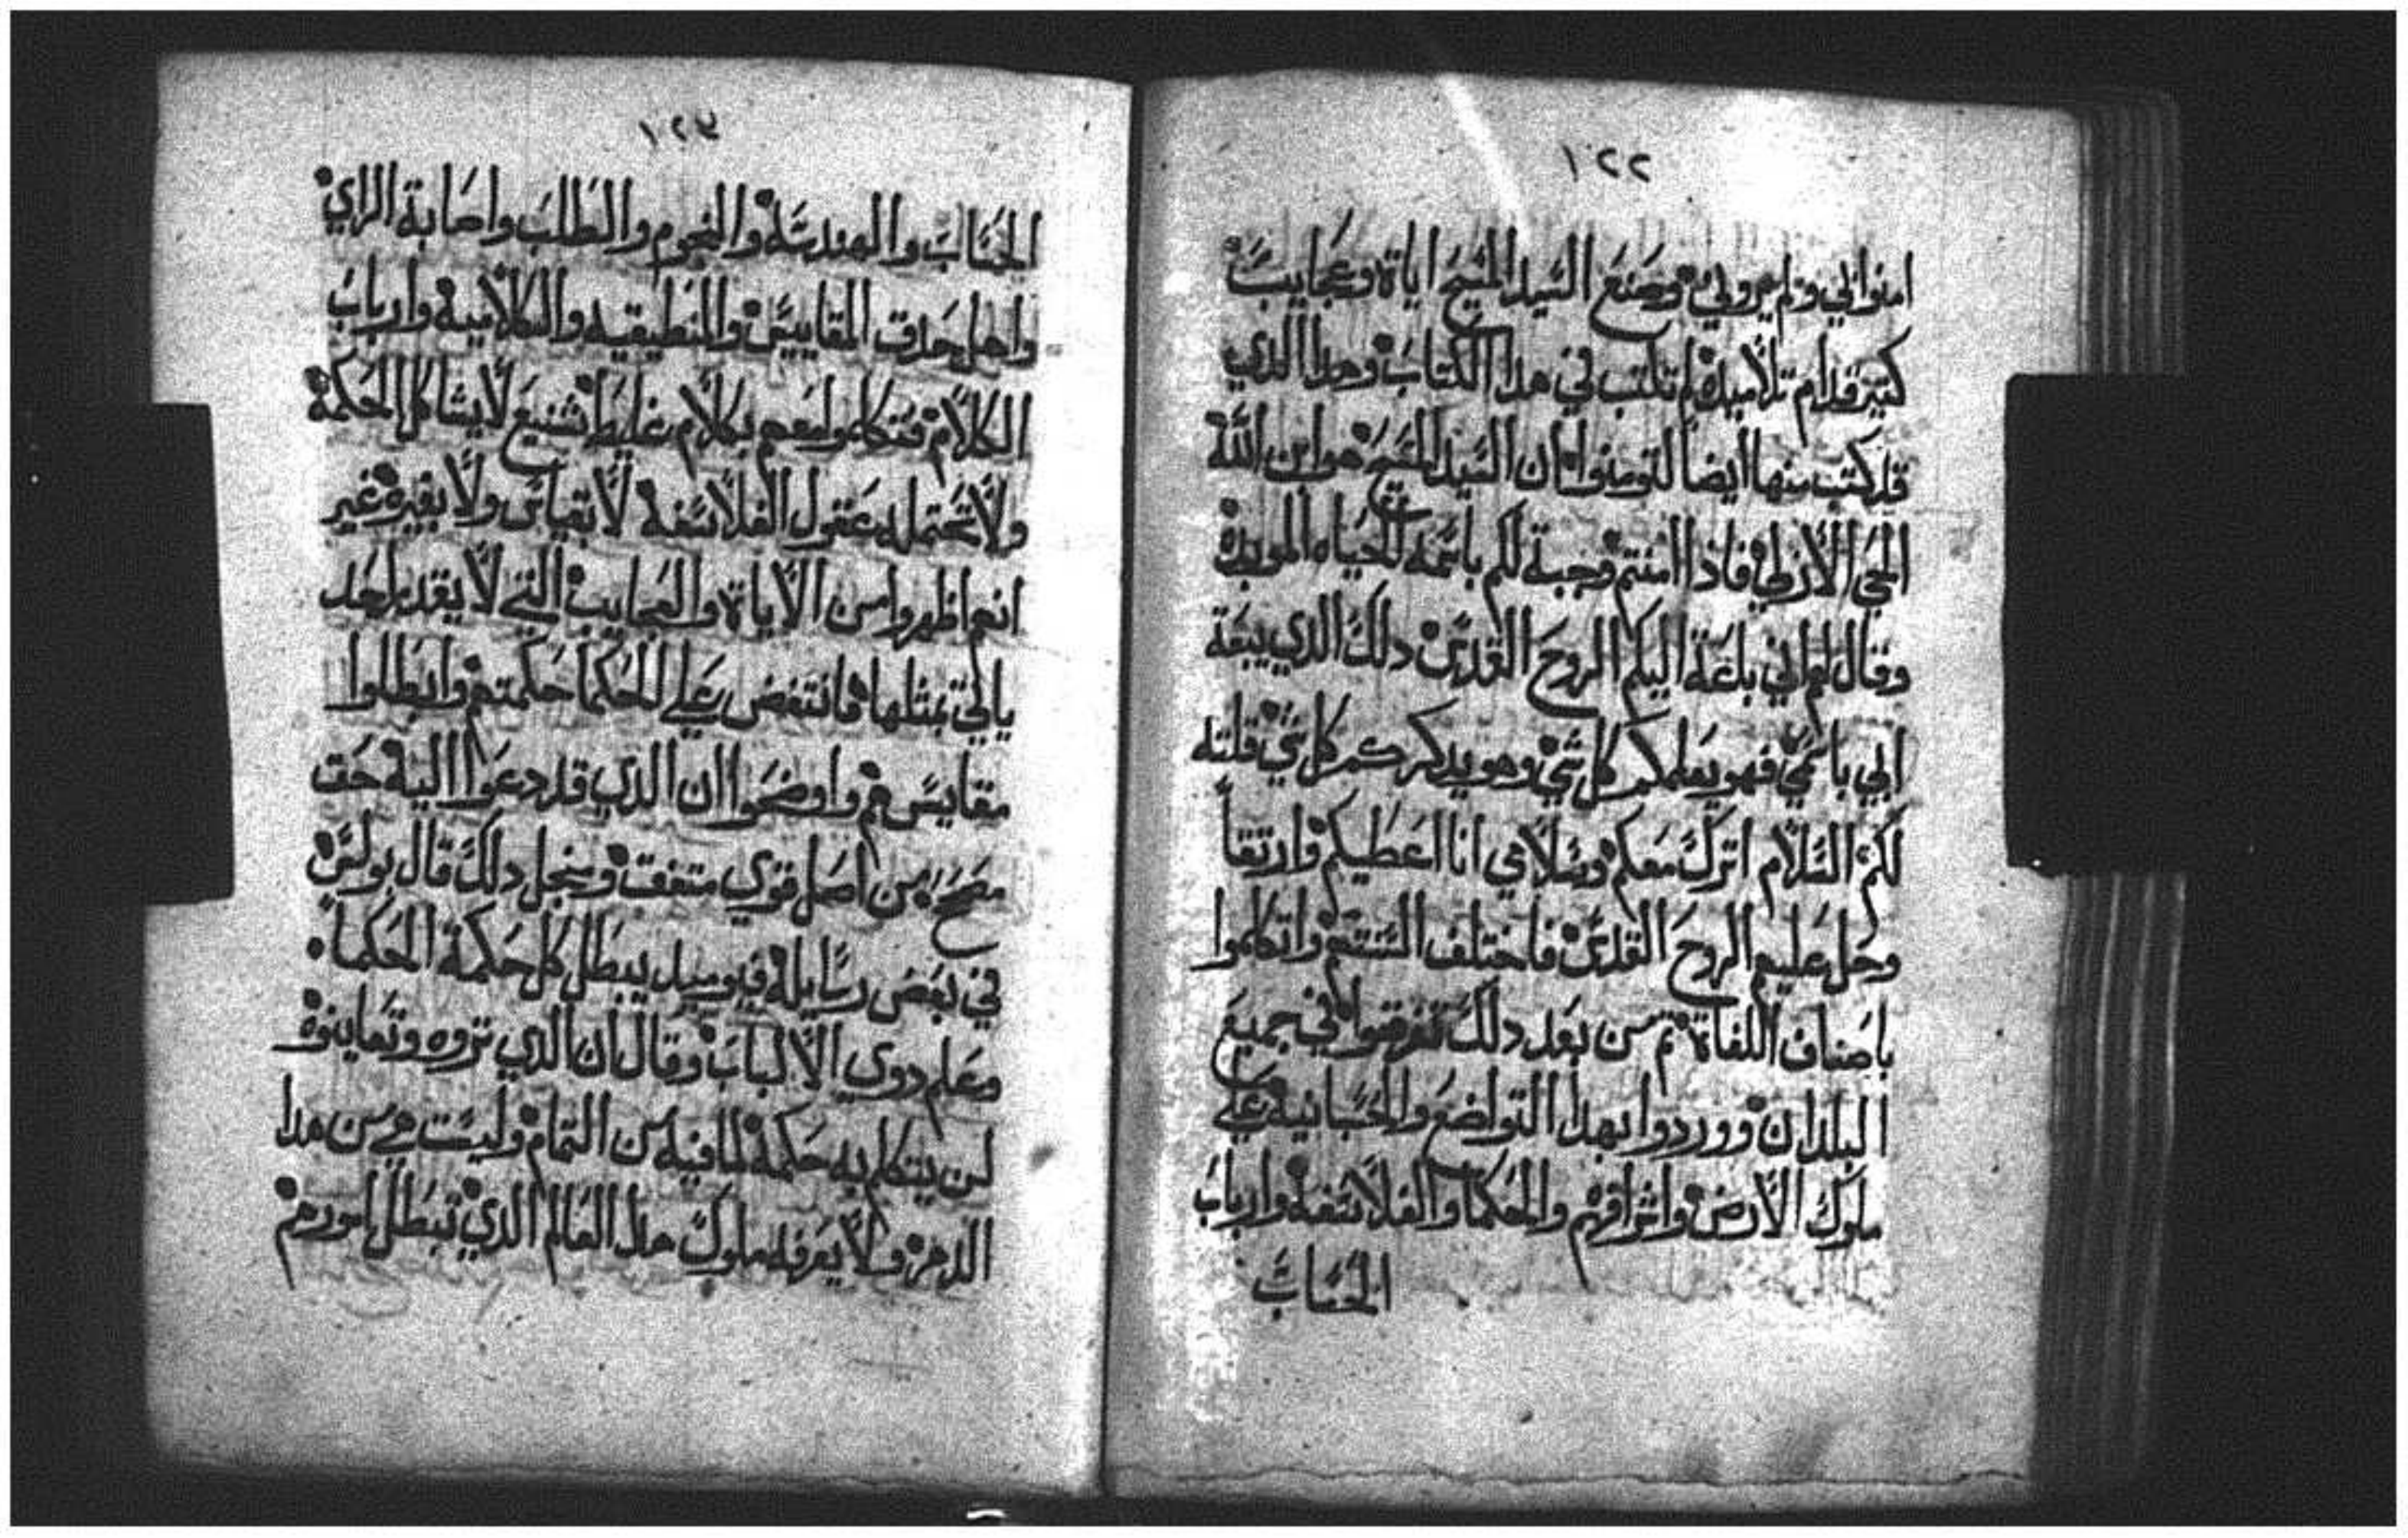 ١٢٢
امنوا بي ولم يروني وصنع السيد المسيح اياة وعجايب
كتير قدام تلاميده لم تكتب في هدا الكتاب وهدا الدي
قد كتب منها ايضاً لتومنوا ان السيد المسيح هو ابن اللّه
الحي الازلي فاذا امنتم وجبة لكم باسمه الحياه الموبده
وقال لهم اني بلعة اليكم الروح القدس دلك الدي يبعة
ابي باسمي فهو يعلمكم كل شي وهو يدكركم كل شي قلته
لكم السلام اترك معكم وسلامي انا اعطيكم وارتقاً
وحل عليهم الروح القدس فاختلف السنتهم واتكلموا
باصناف اللغاة تم من بعد دلك تفرقوا في جميع
البلدان ووردوا بهدا التواضع والحسانية علي
ملوك الارض واشرافهم والحكما والفلاسفه وارباب
الحساب
١٢٣
الحساب والهندسة والنجوم والطلب واصابة الراي
واهل حدق المقاييس والمنطيقيه والكلامية وارباب
الكلام فتكلموا معهم بكلام غليظ شنيع لا يشاكل الحكمة
ولا تحتمله عقول الفلاسفه لا بقياس ولا بغيره غير
انهم اظهروا من الاياة والعجايب التي لا يقدر احد
ياتي بمثلها فانتقض علي الحكما حكمتهم وابطلوا
مقاييسهم واوضحوا ان الدي قد دعوا اليه حق
صحيح من اصل قوي متفق ومنجل دلك قال بولس
في بعض رسايله فيوميد يبطل كل حكمة الحكما
وعلم دوي الالباب وقال ان الدي تروه وتعاينوة
لن يتكلم به حكمة لما فيه من التمام وليست هي من هدا
الدهر ولا يعرفه ملوك هدا العالم الدي تبطل امورهم